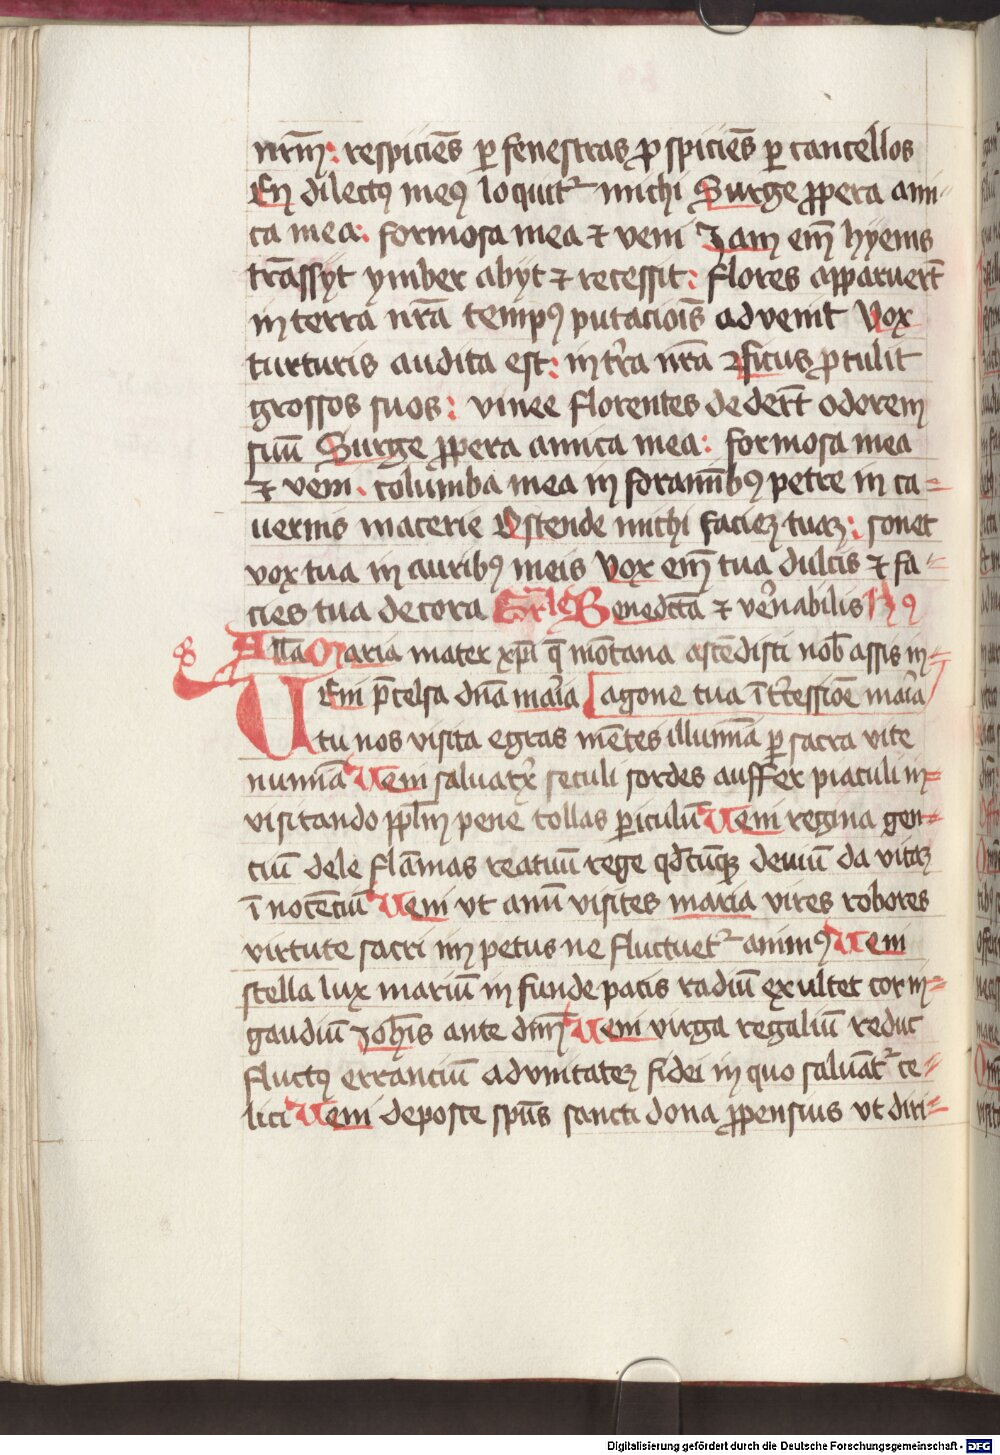 nr̄m: respiciēs ꝑ fenestras ꝓspiciēs ꝑ cancellos
En dilectꝰ meꝰ loquitᷣ michi Surge ꝓpera ami
ca mea: formosa mea ⁊ veni Jam em̄ hyems
trāssyt ymber abyt ⁊ recessit: flores apparuer̄t
in terra nr̄a tempꝰ putaciōis advenit Vox
turturis audita est: in tr̄a nr̄a ficus ꝓtulit
grossos suos: vinee florentes deder̄t odorem
suū Surge ꝓpera amica mea: formosa mea
⁊ veni. columba mea in foramībꝰ petre in ca
uernis macerie Ostende michi faciez tuaz: sonet
vox tua in auribꝰ meis Vox em̄ tua dulcis ⁊ fa
cies tua decora Gr̄le Benedcta ⁊ ven̄abilis
Alla Maria mater xp̄i q̄ mōtana ascēdisti nob̄ assis in
Veni p̄celsa dn̄a mar̄ia [agone tua īt̄cessiōe mar̄ia
tu nos visita egras mētes illumīa ꝑ sacra vite
numīa Veni saluatx̄ seculi sordes auffer piaculi in
visitando ppl̄m pene tollas ꝑiculū Veni regina gen
ciū dele flāmas reatuū rege qd̄cūqꝫ deuiū da vitaz
īnocēciū Veni vt anū visites maria vires robores
virtute sacri inpetus ne fluctuetᷣ animꝰ Veni
stella lux mariū infunde pacis radiū exultet cor in
gaudiū Joh̄is ante dn̄m Veni virga regaliū reduc
fluctꝰ erranciū ad vnitatez fidei in quo saluātᷣ ce
lici Veni deposce spūs sancti dona ꝓpensius vt diri
Digitalisierung gefördert durch die Deutsche Forschungsgemeinschaft - DFG